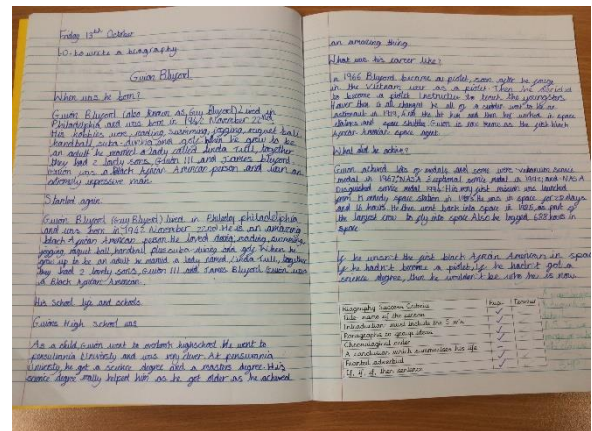 Friday 13th October
L.O. to write a biography
Guion Bluford
When was he born?
Guion Bluford (also known as Guy Bluford) Lived in
Philadelphia and was born in 1942 November 22nd.
His hobbies were reading, swimming, jogging, raquet ball
handball, suba-diving and golf. When he grew to be
an adult he married a lady called Linda Tull, together
they had 2 lovely sons, Guion III and James Bluford.
Guion was a black African American person and was an
extremely impressive man.
Started again.
Guion Bluford (Guy Bluford) lived in philadelphia
and was born in 1942 November 22nd. He is an amazing
black African American person. He loved reading, swimming,
jogging, raquet ball, handball, suba-diving and golf. When he
grew up to be an adult he married a lady named, Linda Tull,
they had 2 lovely sons, Guion III and James Bluford. Guion was
a Black African American.
His school life and schools
Guions High school was
As a child, Guion went to highschool. He went to
University and was very clever. At
University he got a science degree and a masters degree. His
science degree really helped him as he got older as he achieved
an amazing thing.
What was his career like?
In 1966 Bluford became as pilot, soon after he
in the Vietnam war as a pilot. Then he
to become a pilot instructor to teach the youngsters.
it all changed he all of a sudden was to be an
astronaut in 1979, And the he worked in space
stations and space shuttle. Guion is now known as the first black
African American space agent.
What did he achive?
Guion achived lots of medals and some were
medal in 1967, NASA medal in 1992, and NASA
service medal 1994. His very first mission was launched
from Kennedy space station in 1983. He was in space for
and 16 hours. He then went back into space in 1985, as part of
the largest crew to fly into space. Also he logged 688 hours in
space
If he wasn't the first black African American in space
if he hadn't become a if he hadn't got a
science degree, then he wouldn't be who he is now.
Biography Success Criteria
Title name of the person
Introduction must include the 5 w's
Paragraphs to group ideas
Chronological order
A conclusion which summarises his life
Fronted adverbial
If, if, if, then sentence